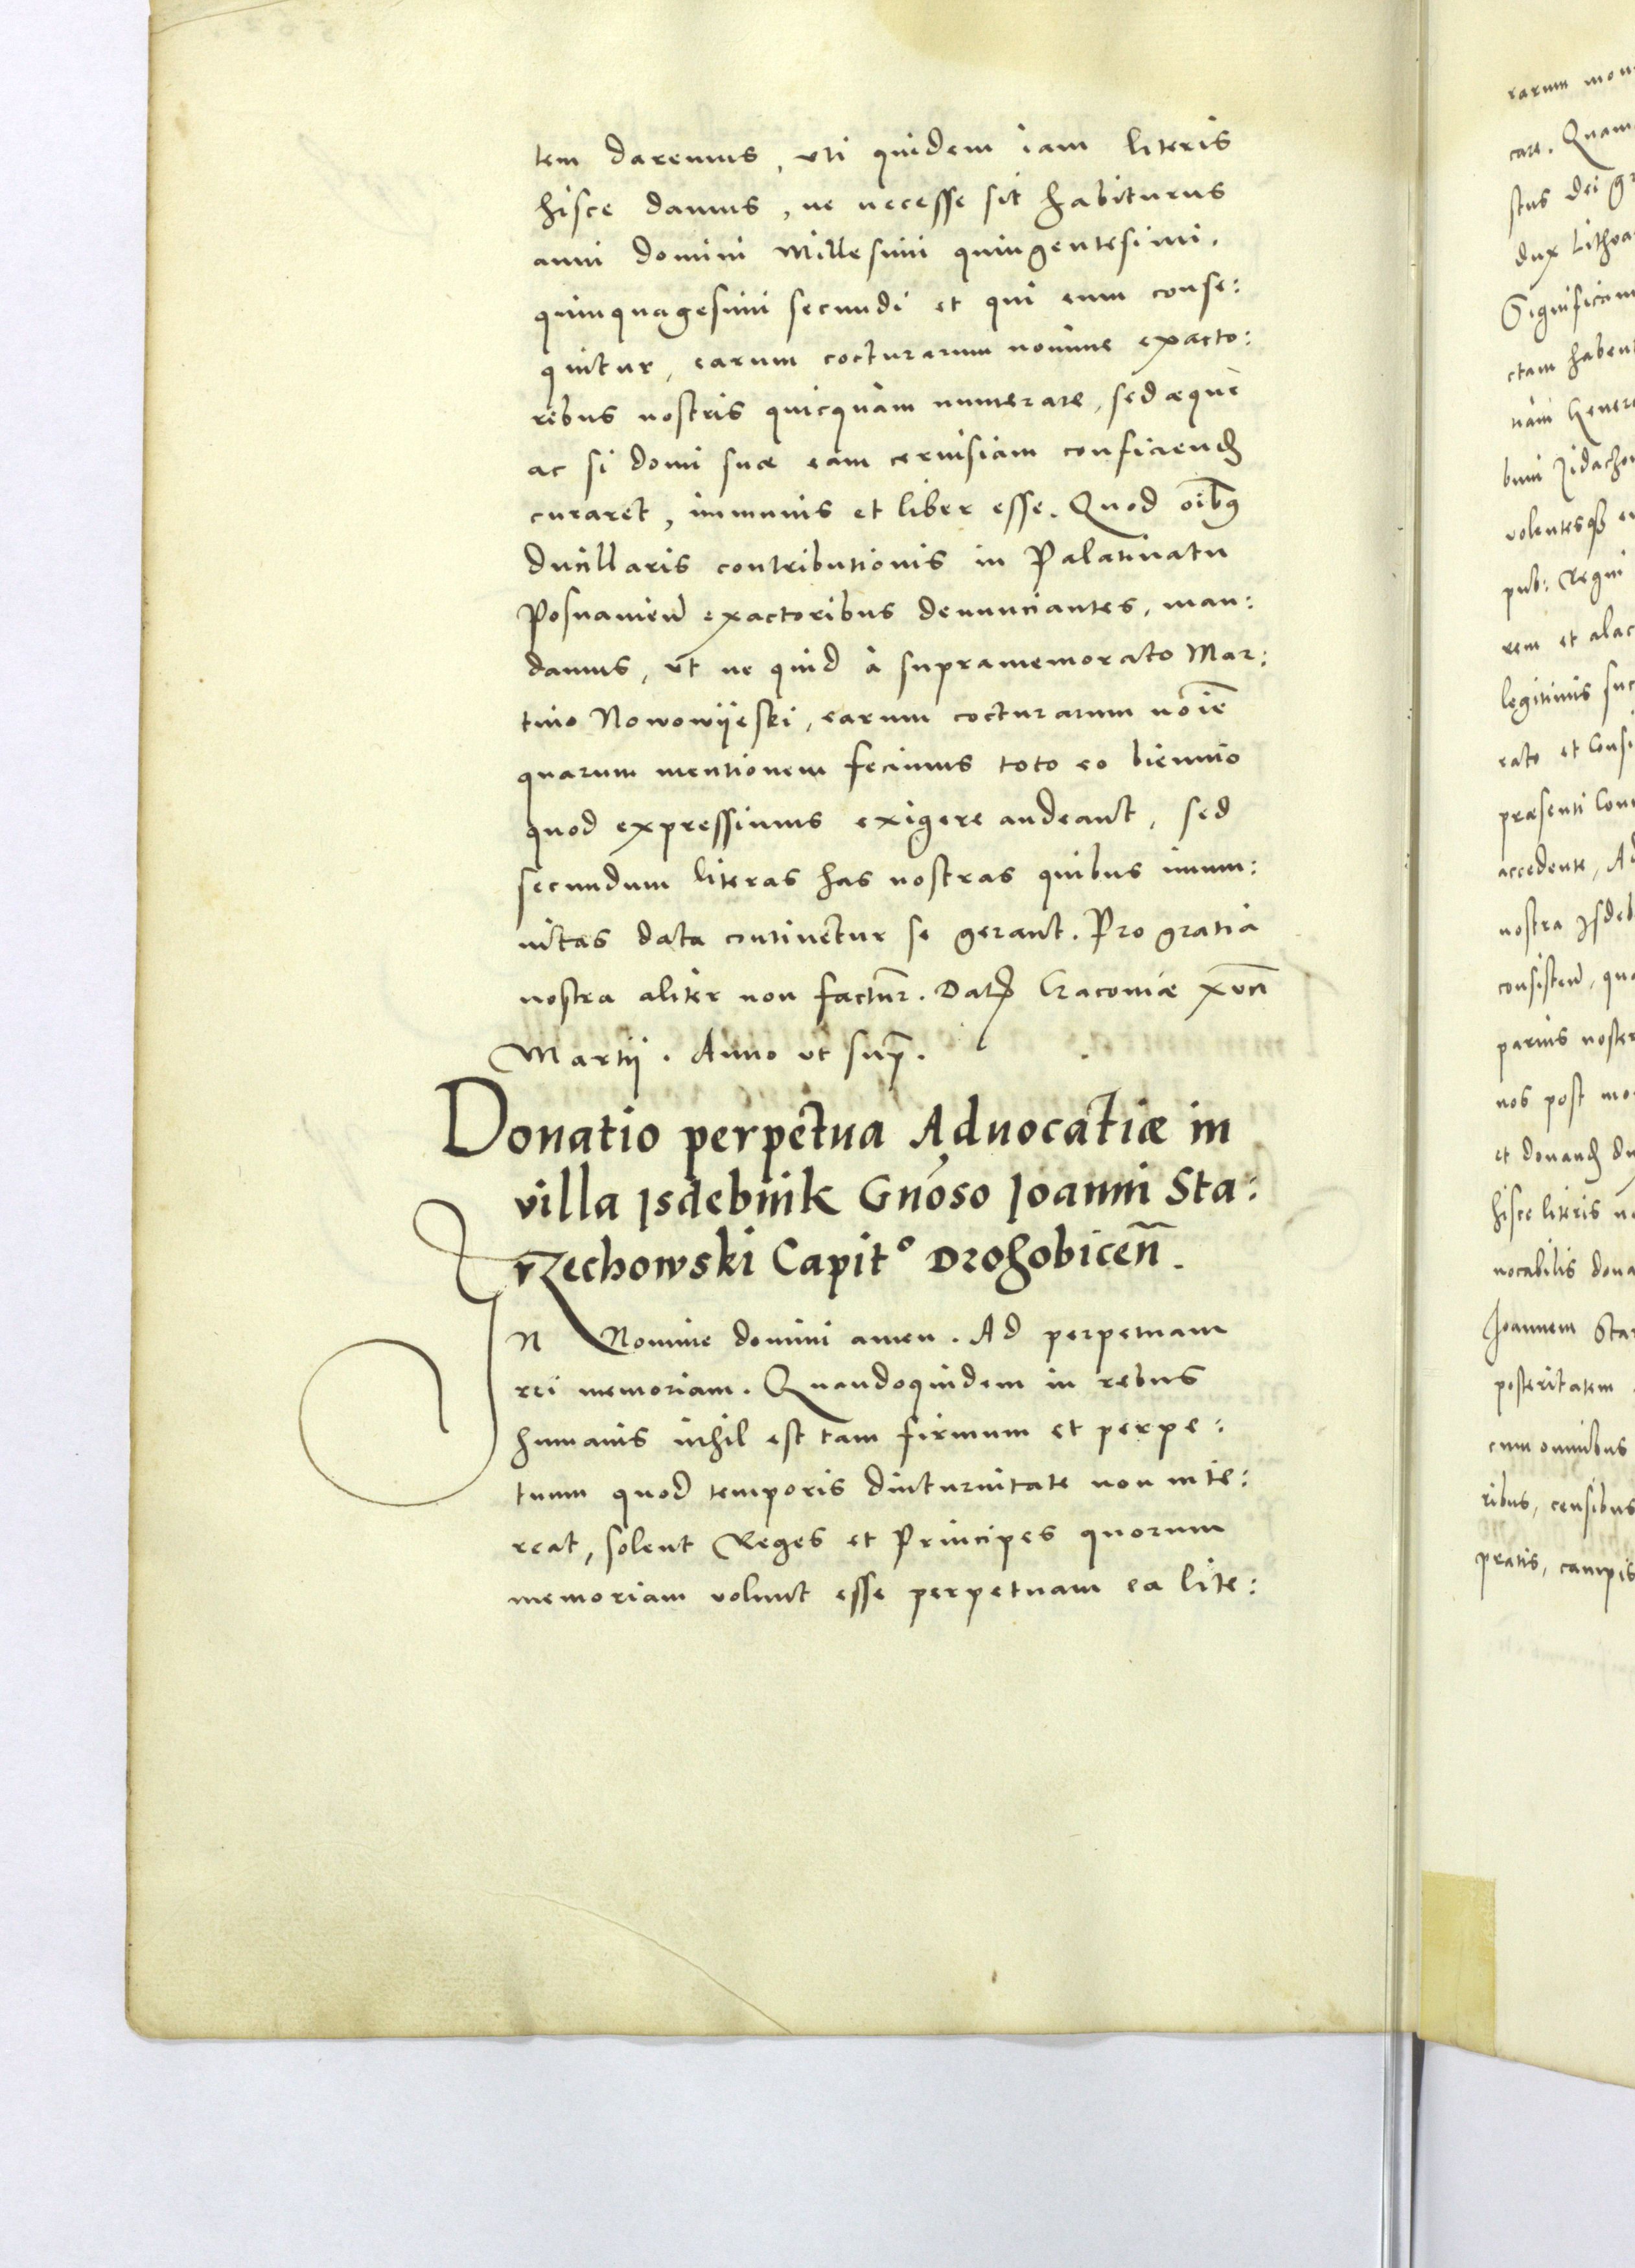 tem daremus, uti quidem iam literis
hisce damus, ne necesse sit habiturus
anni domini Millesimi quingentesimi.
quinquagesimi secundi et qui eum conse:
quitur, earum cocturarum nomine exacto:
ribus nostris quicquam numerare, sed æque
ac si domi suæ eam cervisiam conficiend
curaret, immunis et liber esse. Quod oībus
Ducillaris contributionis in Palatinatu
Posnanien exactoribus denunciantes, man:
damus, ut ne quid à supramemorato Mar:
tino Nowowijeski, earum cocturarum noīe
quarum mentionem fecimus toto eo biennio
quod expressimus exigere audeant, sed
secundum literas has nostras quibus immu:
nitas data continetur se gerant. Pro gratia
nostra aliter non factur. Dat Cracoviæ xvii
Martij. Anno ut sup.
Donatio perpetua Advocatiæ in
villa Isdebnik Gnōso Joanni Sta:
rzechowski Capit° Drohobicen̄.
IN Nomine domini amen. Ad perpetuam
rei memoriam. Quandoquidem in rebus
humanis nihil est tam firmum et perpe:
tuum quod temporis diuturnitate non inte:
reat, solent Reges et Principes quorum
memoriam volunt esse perpetuam ea lite:
care. Quam
stus dei gr
dux Lithva
Significam
ctam haben
volentesq
pub: Regni
rem et alac
legitimis suc
præsenti
accedente, Ad
nostra Isdeb
consisten, qu
nos post mo
et donand du
hisce literis n
vocabilis dona
Joannem Star
posteritatem
cum omnibus
ribus, censibus
pratis, campis